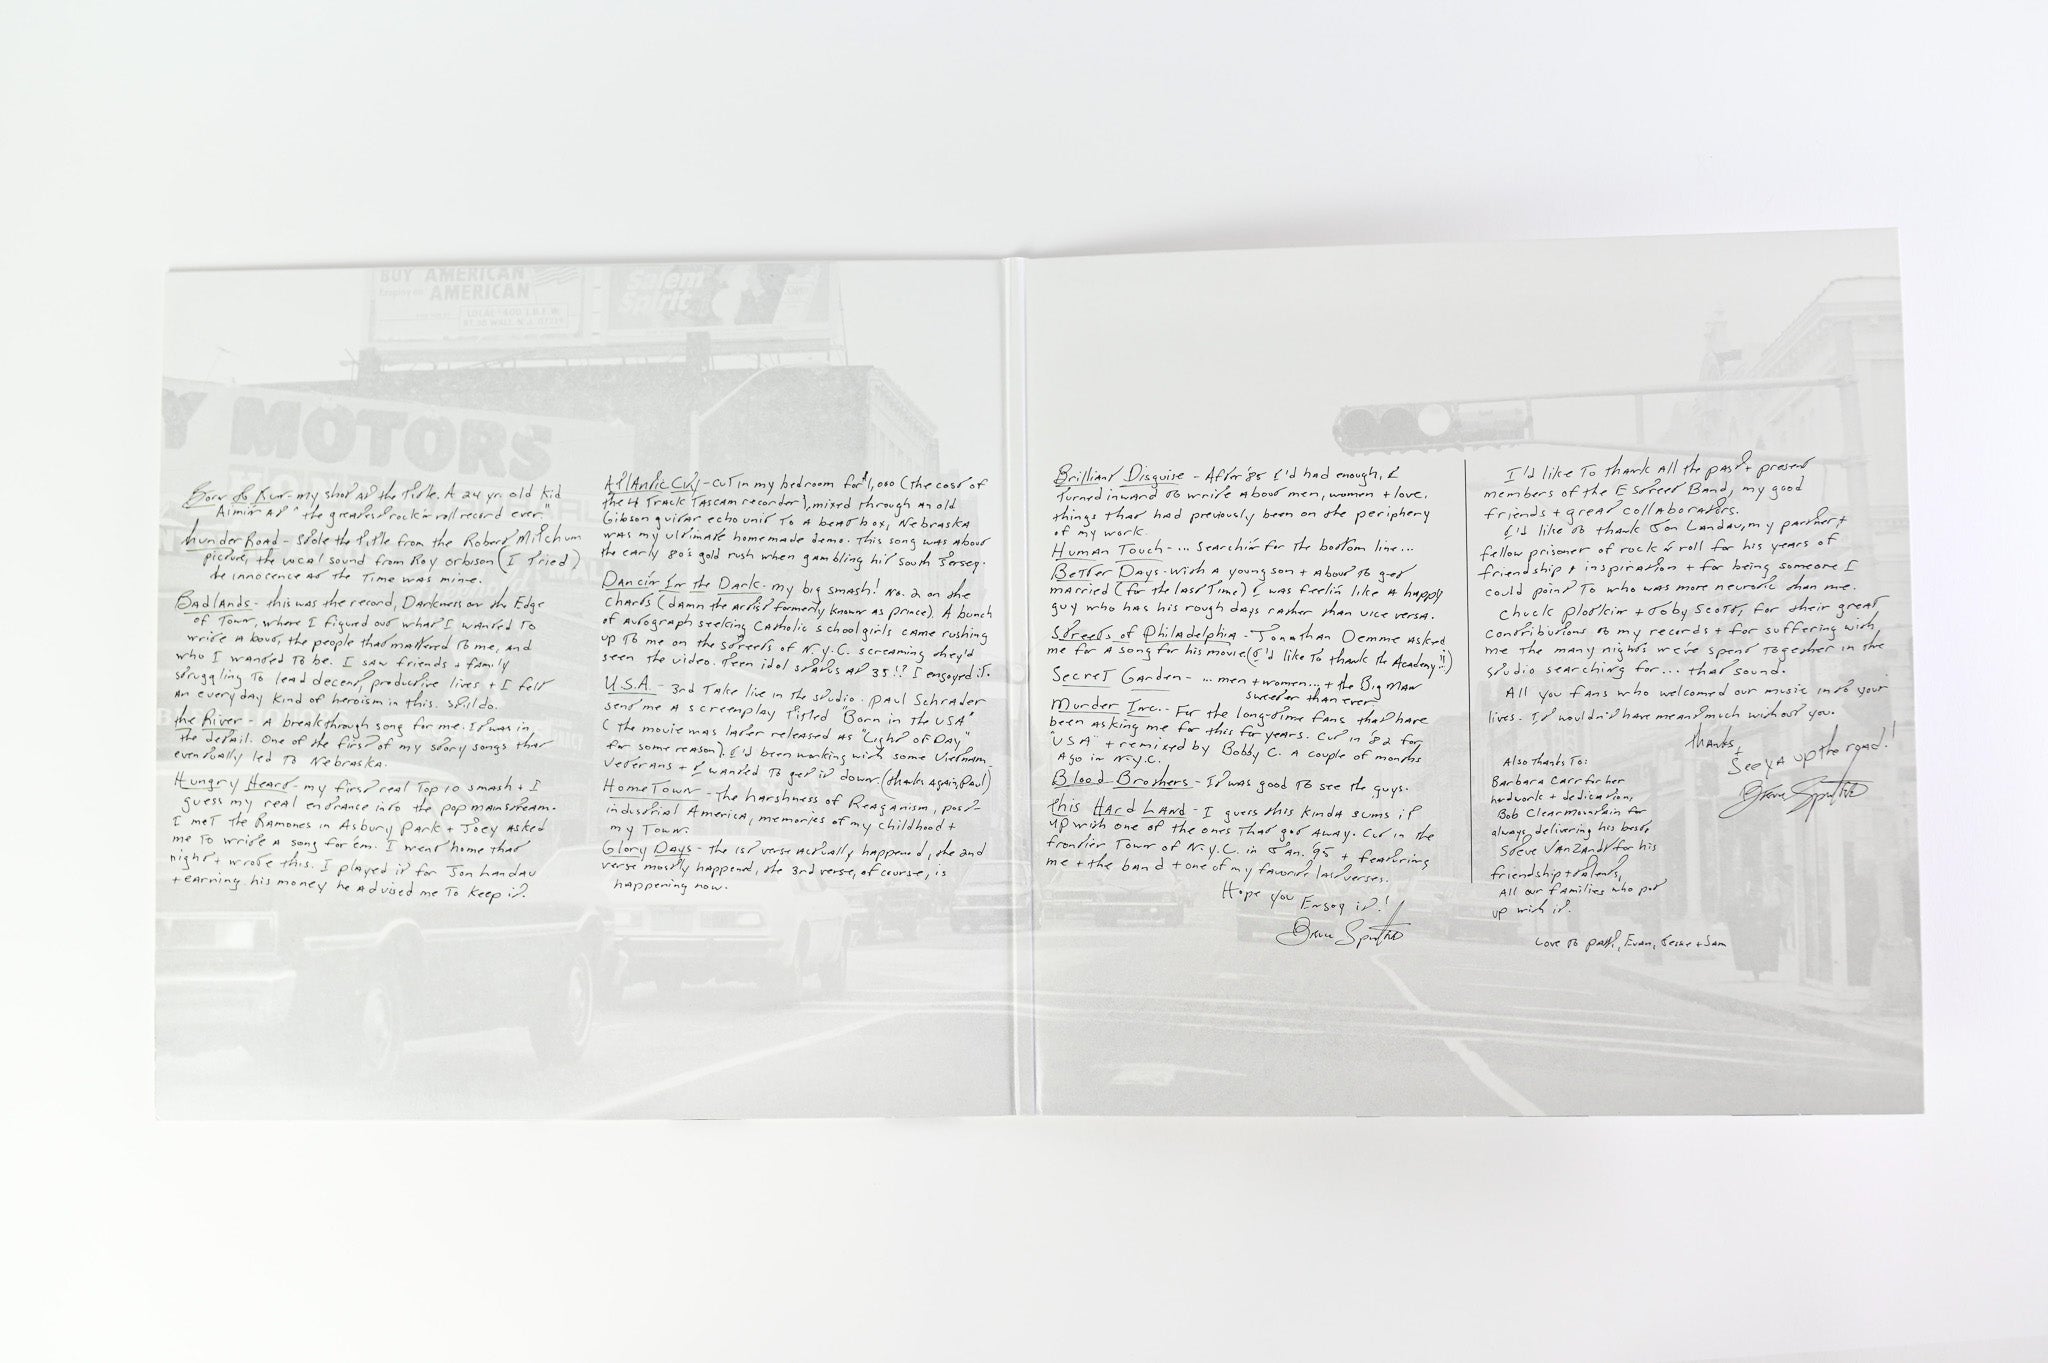 BUY AMERICAN
AMERICAN
Salem
Spirit
Y MOTORS
Born to Run - my shot at the title. A 24 yr. old kid
Aimin' at "the greatest rock'n roll record ever."
Thunder Road - Stole the title from the Robert Mitchum
picture, the vocal sound from Roy Orbison (I Tried)
the innocence at the Time was mine.
Badlands - this was the record, Darkness on the Edge
of Town, where I figured out what I wanted to
write about, the people that mattered to me, and
who I wanted to be. I saw friends + family
struggling to lead decent, productive lives + I felt
an everyday kind of heroism in this. Still do.
The River - A breakthrough song for me. It was in
the detail. One of the first of my story songs that
eventually led to Nebraska.
Hungry Heart - my first real Top 10 smash + I
guess my real entrance into the pop mainstream.
I met the Ramones in Asbury Park + Joey asked
me to write a song for 'em. I went home that
night + wrote this. I played it for Jon Landau
+ earning his money he advised me to keep it.
Atlantic City - cut in my bedroom for $1,000 (the cost of
the 4 Track Tascam recorder), mixed through an old
Gibson guitar echo unit to a beat box, Nebraska
was my ultimate homemade demo. This song was about
the early 80's gold rush when gambling hit South Jersey.
Dancin' In the Dark - my big smash! No. 2 on the
charts (damn the artist formerly known as prince). A bunch
of autograph seeking Catholic schoolgirls came rushing
up to me on the streets of N.Y.C. screaming they'd
seen the video. Teen idol status at 35!? I enjoyed it.
U.S.A. - 3rd Take live in the studio. Paul Schrader
sent me a screenplay titled "Born in the USA"
(the movie was later released as "Light of Day"
for some reason). I'd been working with some Vietnam
Veterans + I wanted to get it down. (thanks again Paul)
HomeTown - the harshness of Reaganism, post-
industrial America, memories of my childhood +
my Town.
Glory Days - the 1st verse actually happened, the 2nd
verse mostly happened, the 3rd verse, of course, is
happening now.
Brilliant Disguise - After '85 I'd had enough, I
turned inward to write about men, women + love,
things that had previously been on the periphery
of my work.
Human Touch - ... searchin' for the bottom line...
Better Days - with a young son + about to get
married (for the last Time) I was feelin' like a happy
guy who has his rough days rather than vice versa.
Streets of Philadelphia - Jonathan Demme asked
me for a song for his movie (I'd like to thank the Academy!!)
Secret Garden - ... men + women... + the Big Man
sweeter than ever
Murder Inc. - For the long-time fans that have
been asking me for this for years. Cut in '82 for
"USA" + remixed by Bobby C. a couple of months
ago in N.Y.C.
Blood Brothers - It was good to see the guys.
This Hard Land - I guess this kinda sums it
up with one of the ones that got away. Cut in the
frontier Town of N.Y.C. in Jan. '95 + featuring
me + the band + one of my favorite last verses.
Hope you Enjoy it!
Bruce Springsteen
I'd like to thank all the past + present
members of the E Street Band, my good
friends + great collaborators.
I'd like to thank Jon Landau, my partner +
fellow prisoner of rock'n roll for his years of
friendship + inspiration + for being someone I
could point to who was more neurotic than me.
Chuck Plotkin + Toby Scott, for their great
contributions to my records + for suffering with
me the many nights we've spent together in the
studio searching for... that sound.
All you fans who welcomed our music into your
lives. It wouldn't have meant much without you.
Thanks,
See ya up the road!
Bruce Springsteen
Also thanks to:
Barbara Carr for her
hardwork + dedication,
Bob Clearmountain for
always delivering his best,
Steve Van Zandt for his
friendship + talents,
All our families who put
up with it.
Love to Patti, Evan, Jessie + Sam